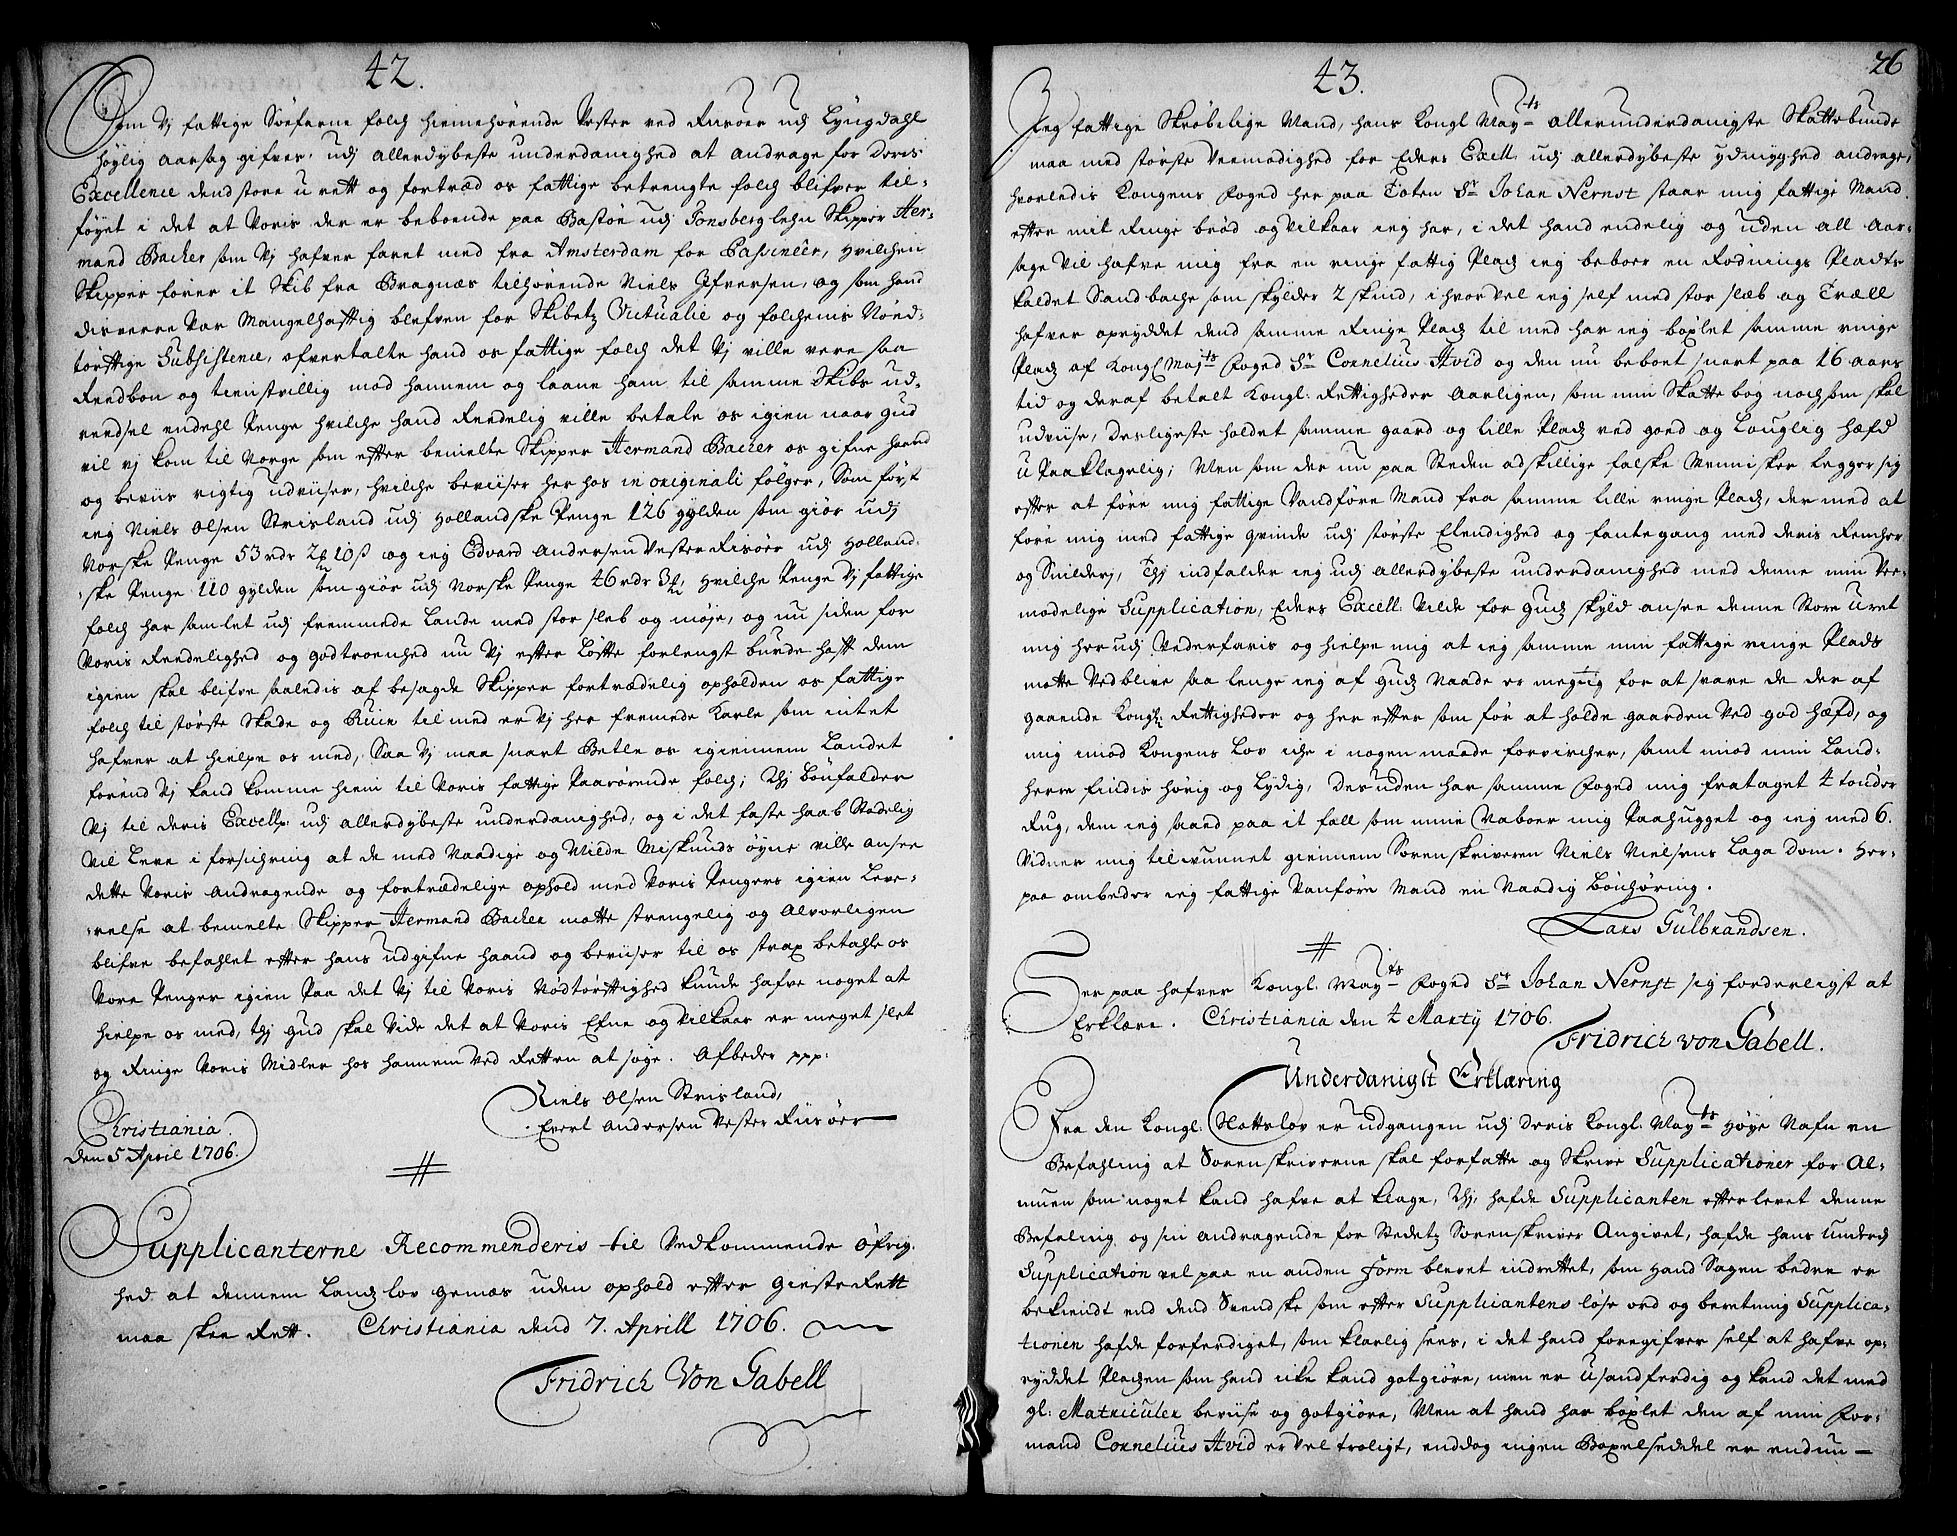 42.
Som Vj fattige Söefarne folch hiemehörende Vester ved Fiiröer udj Lÿngdahl
höÿlig aarsag gifver, udj allerdÿbeste underdanighed at andrage for Deris
Excellence dend store u rett og fortræd os fattige betrengte folch blifver til-
föyet i det at Voris der er beboende paa Bastöe udj Tonsberg lehn Skipper Her-
mand Backer som Vj hafver faret med fra Amsterdam for Passineer, hvilchen
Skipper förer it Skib fra Bragnæs tilhörende Niels Ifversen, og som hand
disverre var Mangelhafftig blefven for Skibetz Victualie og folchenis Nönd-
törfftige Subsistence, ofvertalte hand os fattige folch det Vj ville vere saa
reedbon og tienstvillig mod hannem og laane ham til samme Skibs ud-
reedsel endehl Penge hvilche hand reedelig ville betale os igien naar Gud
vil vj kom til Norge som effter bemelte Skipper Hermand Backer os gifne haand
og beviis rigtig udviiser, hvilche beviiser her hos in originali fölger, Som först
ieg Niels Olsen Strisland udj Hollandske Penge 126 gÿlden som giör udj
Norske Penge 53 rdr 2 ₰ 10 ß og ieg Edvard Andersen Vester Risöer udj Holland-
ske Penge 110 gÿlden som giör udj Norske Penge 46 rdr 3 ₰, hvilche Penge Vj fattige
folch har samlet udj fremmede Lande med stor sleb og möje, og nu siden for
Voris reedelighed og godtroenhed nu Vj effter Löffte forlengst burde hafft dem
igien skal blifve saaledis af besagde Skipper fortrædelig opholden os fattige
folch til störste Skade og Ruin til med er Vj her fremede Karle som intet
hafver at hielpe os med, Saa Vj maa snart Betle os igiennem Landet
förend Vj kand komme hiem til Voris fattige Paarörende folch; Thj Bönfalder
Vj til deris Excell: udj allerdÿbeste underdanighed, og i det faste haab Stedelig
Vil Leve i forsichring at de med Naadige og Milde Miskunds öÿne ville ansee
dette Voris andragende og fortrædelige ophold med Voris Pengers igien Leve-
relse at bemelte Skipper Hermand Backer motte strengelig og Alvorligen
blifve befahlet effter hans udgifne haand og beviiser til os strax betahle os
Vore Penger igien Paa det Vj til Voris Nödtörfftighed kunde hafve noget at
hielpe os med, thj Gud skal Vide det at Voris Efne og Vilkaar er meget slet
og Ringe Voris Midler hos hannem Ved Retten at söge. Afbeder ppp:
Niels Olsen Strisland,
Evert Andersen Vester Riisöer
Christiania
den 5 April 1706.
Supplicanterne Recommenderis til Vedkommende öfrig-
hed at dennem Landslov gemæs uden ophold effter giesteRett
maa skee Rett. Christiania dend 7. Aprill 1706.
Fridrich Von Gabell
43.
26
Jeg fattige Skröbelige Mand, hans Kongl May:ts allerunderdanigste Skattebunde
maa med störste Veemodighed for Eders Excell. udj allerdÿbeste ydmyghed andrage,
hvorledis Kongens Foged her paa Toten Sr Johan Nernst staar mig fattige Mand
effter mit Ringe bröd og Vilkaar ieg har, i det hand endelig og uden all Aar-
sage Vil hafve mig fra en ringe fattig Plads ieg beboer en Rödnings Plads
kaldet Sandbache som skÿlder 2 skind, i hvor Vel ieg self med stor slæb og Træll
hafver oprÿddet dend samme Ringe Plads til med har ieg böxlet samme ringe
Plads af Kongl May:ts Foged Sr Cornelius Hvid og den nu beboet snart paa 16 aars
tid og deraf betalt Kongl: Rettigheder Aarligen, som min Skatte bog nochsom skal
udviise, desligeste holdet samme gaard og lille Plads ved goed og Louglig Hæfd
uPaaklagelig; Men som der nu paa Steden adskillige falske Mennisker legger sig
effter at före mig fattige Vandföre Mand fra samme lille ringe Plads, der med at
före mig med fattige qvinde udj störste Elendighed og fantegang med deris Rencher
og Snilderj, Thj indfalder ieg udj allerdÿbeste underdanighed med denne min Vee-
modelige Supplication, Eders Excell: Vilde for Guds skÿld ansee denne Store uret
mig her udj Vederfaris og hielpe mig at ieg samme min fattige ringe Plads
motte Ved blive saa lenge ieg af Guds Naade er megtig for at svare de der af
gaaende Kongl: Rettigheder og her effter som för at holde gaarden Ved god Hæfd, og
mig imod Kongens Lov iche i nogen maade forvircher, samt imod min Land-
herre findis hörig og Lÿdig, Des uden har samme Foged mig frataget 4 tönder
Rug, dem ieg saaed paa it fall som mine Naboer mig Paahugget og ieg med 6.
Vidner mig til vunnet giennem Sorenskriveren Niels Nielsens Laga Dom. Her-
paa ombeder ieg fattige Vanföre Mand en Naadig Bönhöring.
Lars Gulbrandsen.
Her paa hafver Kongl. May:ts Foged Sr Johan Nernst sig forderligst at
Erklære. Christiania den 4 Martÿ 1706.
Fridrich von Gabell.
Underdanigst Erklæring
Fra den Kongl. Slotslov er udgangen udj Deris Kongl. May:ts Höÿe Nafn en
Befahling at Sorenskriverne skal forfatte og Skrive Supplicationer for Al-
muen som noget kand hafve at klage, Thj hafde Supplicanten effterlevet denne
Befeling og sin andragende for Stedetz Sorenskriver Angivet, hafde hans Underd
Supplication vel paa en anden form blevet indrettet, som hand Sagen bedre er
bekiendt end dend Svendske som effter Supplicantens löse ord og beretning Supplica-
tionen hafde forferdiget, som klarlig sees, i det hand foregifver self at hafve op-
rÿddet Pladsen som hand icke kand gotgiöre, men er Usandferdig og kand det med
gl: Matriculer beviise og gotgiöre, Men at hand har böxlet den af min For-
mand Cornelius Hvid er Vel troligt, enddog ingen Böxelseddel er endnu